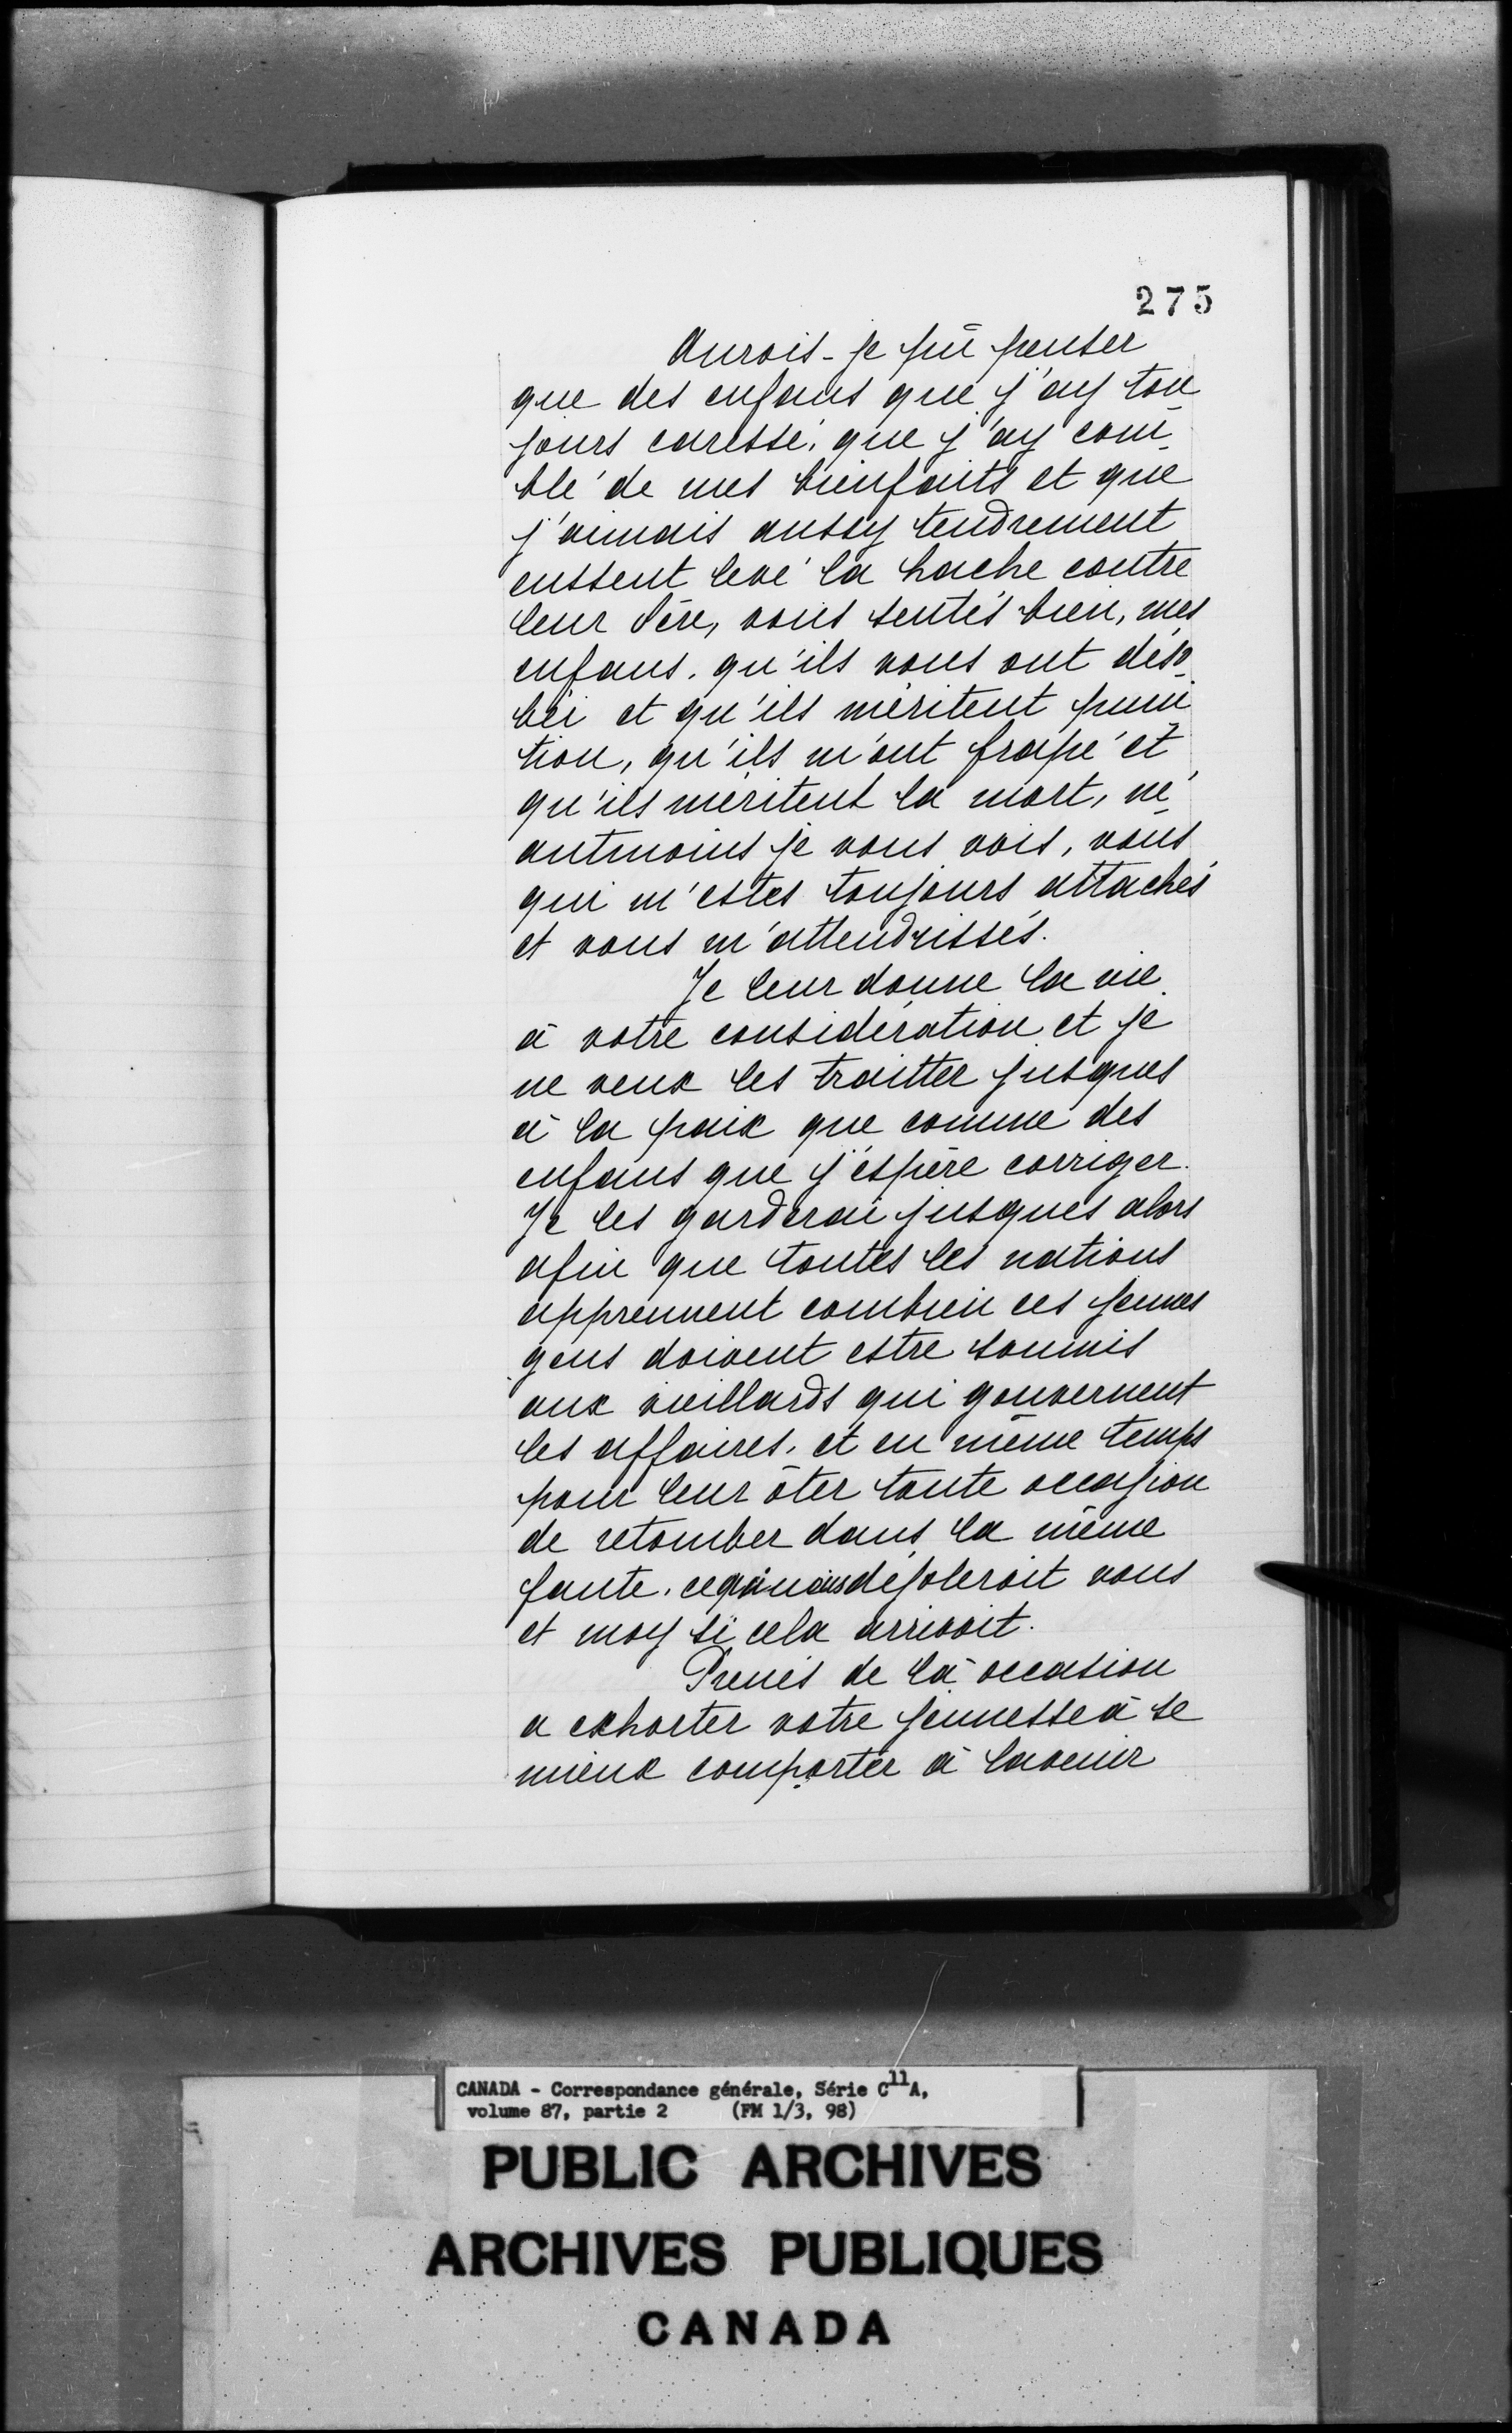 275
Aurois-je pû penser
que des enfans que j'ay tou
jours caressé, que j'ay com-
blé de mes bienfaits et que
j'aimais aussy tendrement
eussent levé la hache contre
leur Père, vous sentés bien, mes
enfans, qu'ils vous ont déso-
béi et qu'ils méritent puni
tion, qu'ils m'ont frapé et
qu'ils méritent la mort, né-
antmoins je vous vois, vous
qui m'estes toujours attachés
et vous m'attendrissés.
Je leur donne la vie
à votre considération et je
ne veux les traitter jusques
à la paix que comme des
enfans que j'espère corriger.
Je les garderai jusques alors
afin que toutes les nations
apprennent combien ces jeunes
gens doivent estre soumis
aux vieillards qui gouvernent
les affaires, et en même temps
pour leur ôter toute occasion
de retomber dans la même
faute, ce qui nous désoleroit vous
et moy si cela arrivoit.
Prenés de là occasion
a exhorter votre jeunesse à se
mieux comporter à lavenir
CANADA - Correspondance générale, Série C11A,
volume 87, partie 2 (FM 1/3, 98)
PUBLIC ARCHIVES
ARCHIVES PUBLIQUES
CANADA